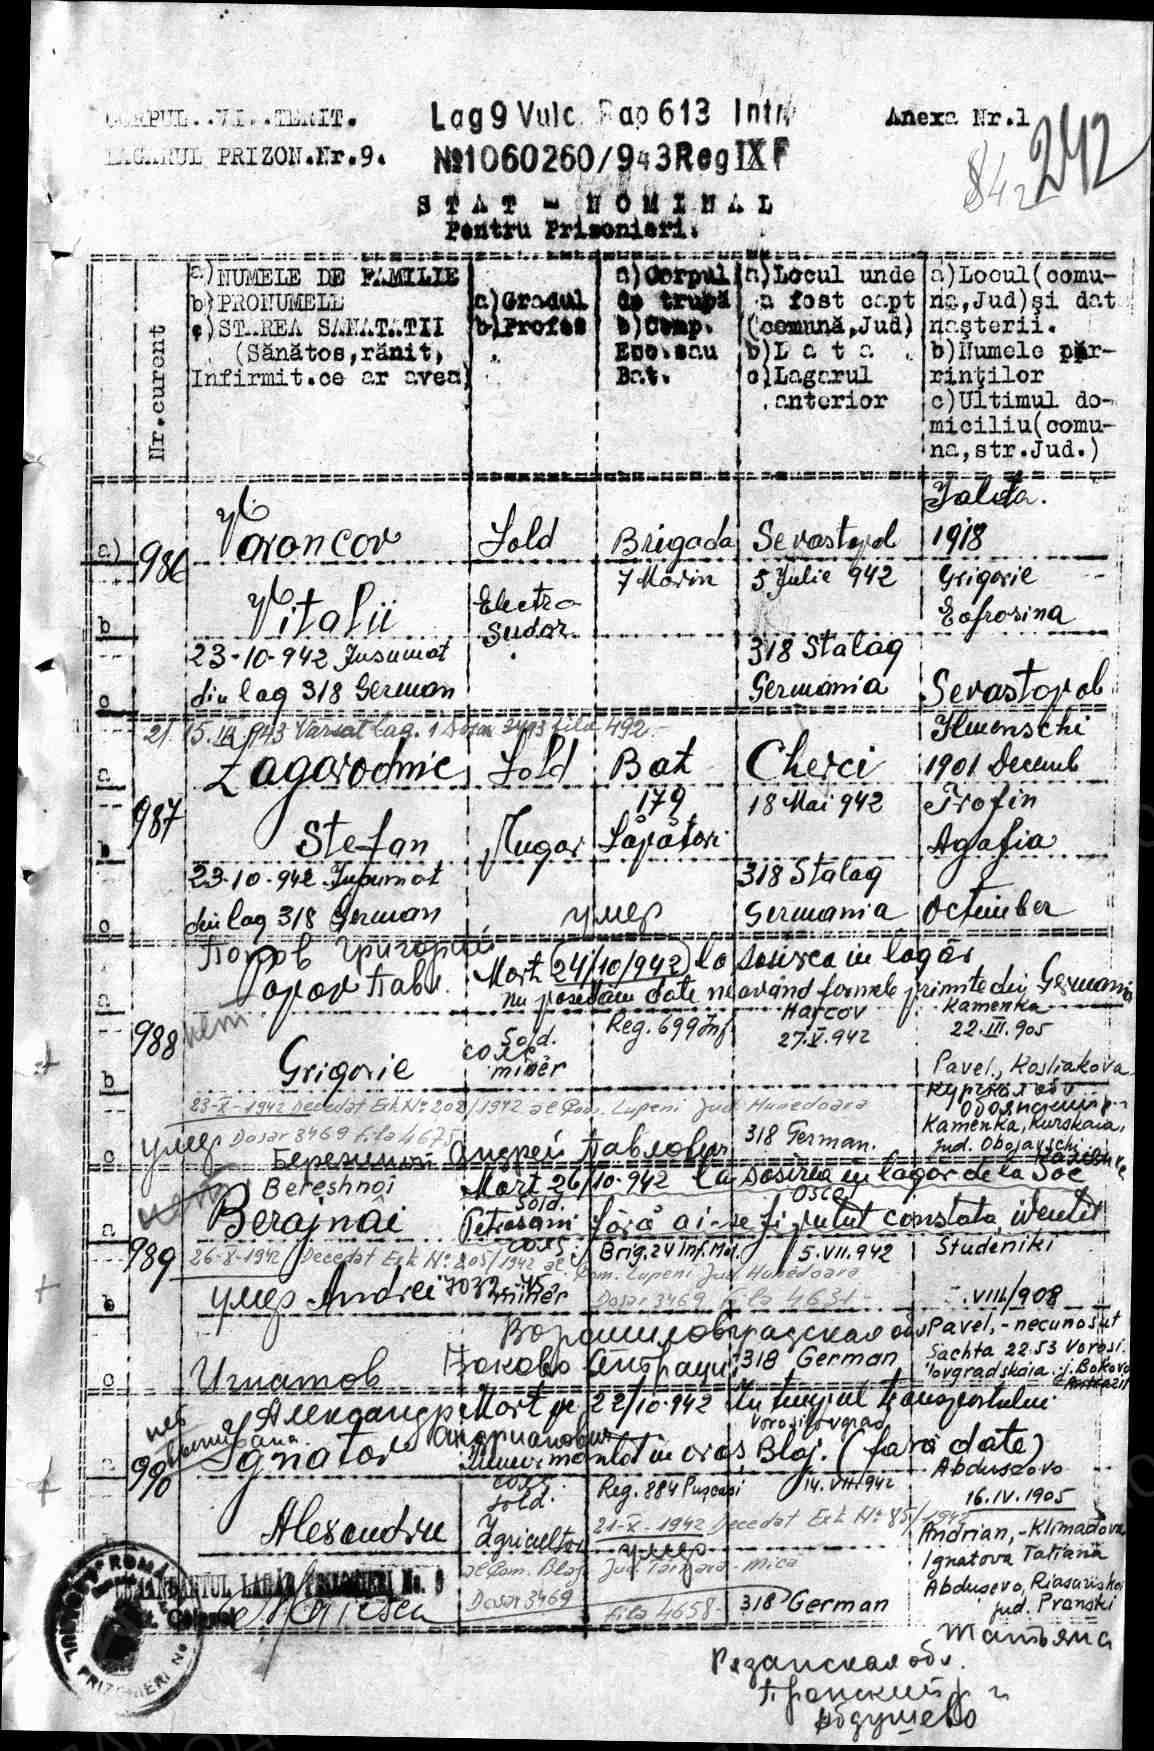 CORPUL..VI..TERIT.
LAGARUL PRIZON.Nr.9.
Lag 9 Vulc. Rap 613 Intr
№1060260/943 Reg IX F
Anexa Nr.1
242
842
STAT - NOMINAL
Pentru Prizonieri.
Nr.curent
a)NUMELE DE FAMILIE
b)PRONUMELE
c)STAREA SANATATII
(Sănătos,rănit,
Infirmit.ce ar avea)
a)Gradul
b)Profes
a)Corpul
de trupă
b)Comp.
Esc.sau
Bat.
a)Locul unde
a fost capt
(comună,Jud)
b)L a t a
c)Lagarul
anterior
a)Locul(comu-
na,Jud)și dat
nașterii.
b)Numele păr-
rinților
c)Ultimul do-
miciliu(comu-
na,str.Jud.)
986
a)
b
c
Voroncov
Vitalii
23-10-942 Insumat
din lag 318 German
Sold
Electro
Sudor
Brigada
7 Marin
Sevastopol
5 Iulie 942
318 Stalag
Germania
Ialta.
1918
Grigorie
Eofrosina
Sevastopol
21. 15.III.943 Varsat Lag. 1 Dosar 3493 fila 492.-
987
a
b
c
Zagorodnic
Stefan
23-10-942 Insumat
din lag 318 German
Sold
Plugar
умер
Bat
179
Săpători
Cherci
18 Mai 942
318 Stalag
Germania
Ilmenschi
1901 Decemb
Trofin
Agafia
Octeniber
Попов Григорий
Popov Павл.
Mort 24/10/942 la sosirea in lagăr
nu posedăm date neavând formele primite din Germania
988
a
b
c
нет
Grigorie
Sold.
солд
minér
Reg. 699 Inf
Harcov
27.V.942
Kamenka
22.III.905
Pavel, Kosliakova
Kamenka, Kurskaia,
jud. Obojavschi
23-X-1942 Decedat Ext No 202/1942 al Com. Lupeni Jud Hunedoara
умер Dosar 3469 fila 4675
318 German.
Бережный Андрей Павлович
Bereshnoi
Mort 26/10-942 la sosirea in lagar de la Soc
Berajnai
Sold.
Petrosani fără ai-se fi putut constata identit
989
a
b
c
26-X-1942 Decedat Ext No 205/1942 al
Com. Lupeni Jud Hunedoara
Dosar 3469 fila 4631-
умер Andrei
солд
minér
Brig. 24 Inf. Mar.
5.VII.942
Studeniki
VIII/908
Ворошиловградская обл
Pavel, - necunosut
Боково Антрацит
318 German
Sachta 22.53 Vorosi.
lovgradskaia j. Bokovo
Antrazit
Игнатов
Александр
Андрианович
Mort pe 22/10-942 In timpul transportului
Vorosilovgrad
Ignatov
Inmormantat in oraș Blaj. (fara date)
990
a
b
Alexandru
солд.
sold.
agricultor
Reg. 884 Pușcași
14.VII.942
Abdusevo
16.IV.1905
21-X-1942 Decedat Ext No 85/1942
умер
al Com. Blaj Jud. Tarnava-mica
Dosar 3469
fila 4658-
318 German
Andrian, - Klimadova
Ignatova Tatiana
Abdusevo, Riasanskoi
jud. Pronski
Татьяна
Рязанская обл.
Пронский р-н
Абдушево
COMANDANTUL LAGAR PRISONIERI No. 9
Lt. Colonel